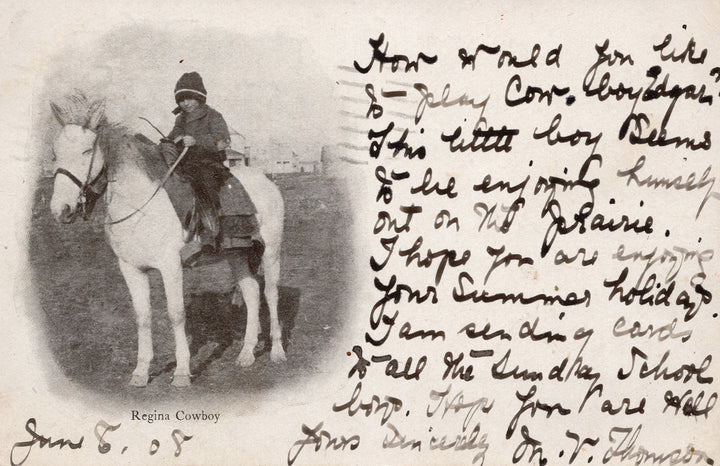 How would you like
to play Cow-boy "Edgar"?
This little boy seems
to be enjoying himself
out on the prairie.
I hope you are enjoying
your Summer holidays.
I am sending cards
to all the Sunday School
boys. Hope you are well
Yours Sincerely M. V. Thomson
Regina Cowboy
June 8. 08